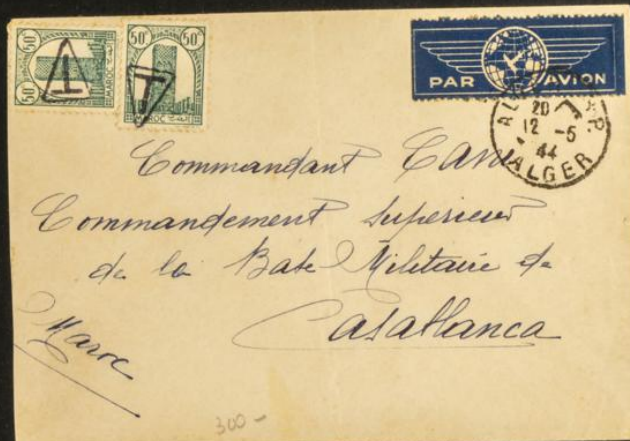 50ᶜ 50ᶜ
T
MAROC
50ᶜ 50ᶜ
T
MAROC
PAR AVION
20
12 -5
44
ALGER
Commandant
Commandement Supérieur
de la Base Militaire de
Casablanca
Maroc
300 -